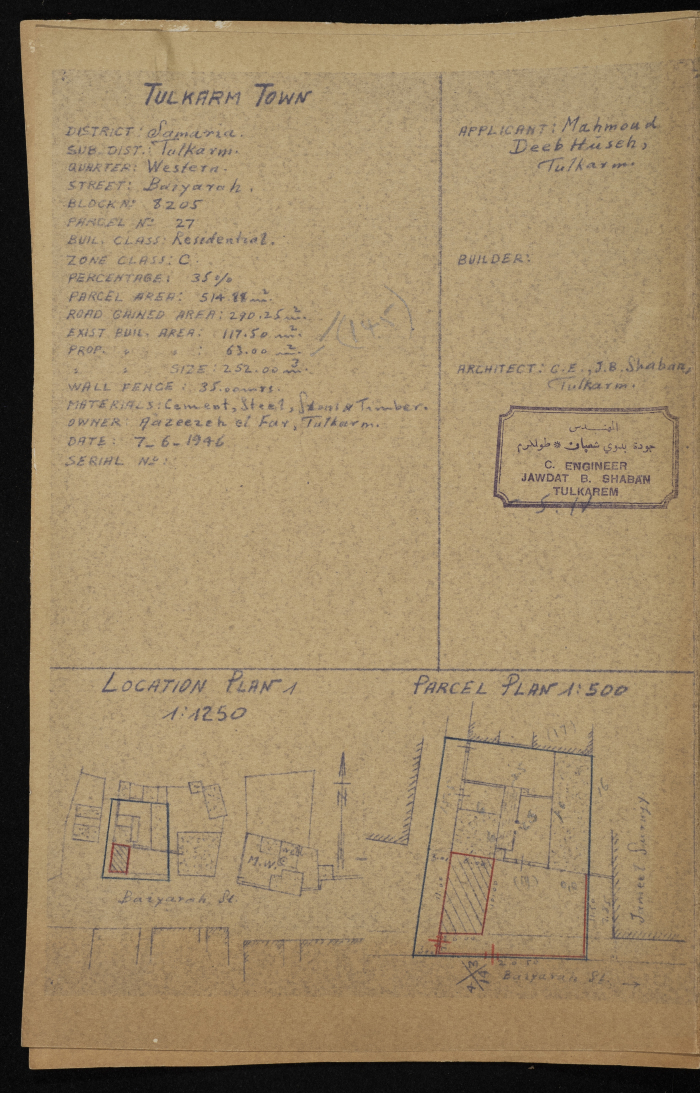 TULKARM TOWN
DISTRICT: Samaria.
SUB. DIST.: Tulkarm.
QUARTER: Western.
STREET: Baiyarah.
BLOCK Nº 8205
PARCEL Nº 27
BUIL. CLASS: Residential.
ZONE CLASS: C.
PERCENTAGE: 35%
PARCEL AREA: 514.88 m².
ROAD GAINED AREA: 290.25 m².
EXIST BUIL. AREA: 117.50 m².
PROP. " " : 63.00 m².
" " SIZE: 252.00 m³.
WALL FENCE: 35.00 mrs.
MATERIALS: Cement, Steel, Stone & Timber.
OWNER: Aazeezeh el Far, Tulkarm.
DATE: 7-6-1946
SERIAL Nº:
(145)
APPLICANT: Mahmoud
Deeb Huseh,
Tulkarm.
BUILDER:
ARCHITECT: C.E., J.B. Shaban,
Tulkarm.
المهندس
جودة بدوي شعبان * طولكرم
C. ENGINEER
JAWDAT B. SHABAN
TULKAREM
LOCATION PLAN 1
1:1250
N
Baiyarah St.
PARCEL PLAN 1:500
Baiyarah St.